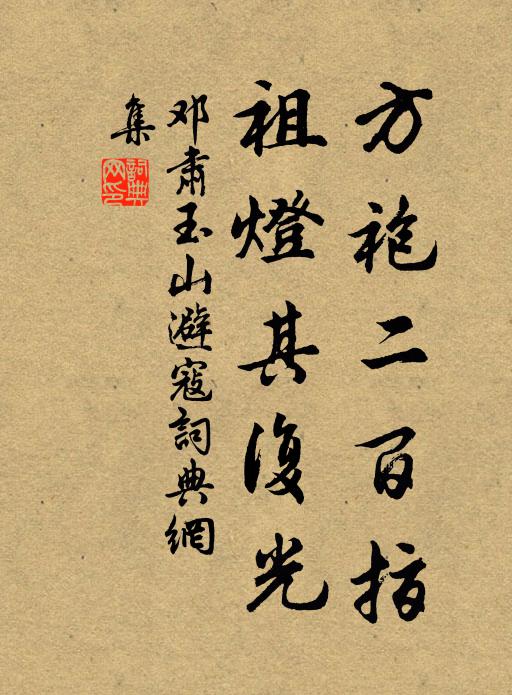 方袍二百指
祖燈其復光
邓肅玉山避寇詞典網
集
詞典
网印